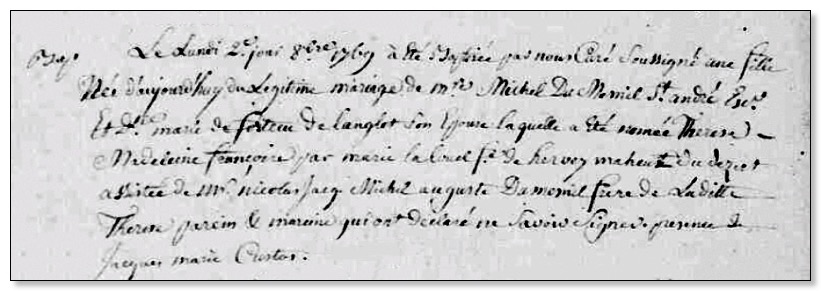 Bap.
Le Lundi 2e jour 8bre 1769 a été Baptisée par nous Curé Soussigné une fille
Née d'aujourdhuy du Legitime mariage de mre Michel Du Mesnil St andré Escr
Et Dme marie de de Langlot Son Epouse laquelle a été nomée Therese
Medeleine françoise par marie fe de hervey maheut du
assistée de Mr nicolas Jacq Michel auguste Dumesnil frere de Laditte
Therese parein & mareine qui ont déclaré ne Savoir Signer presence de
Jacques marie